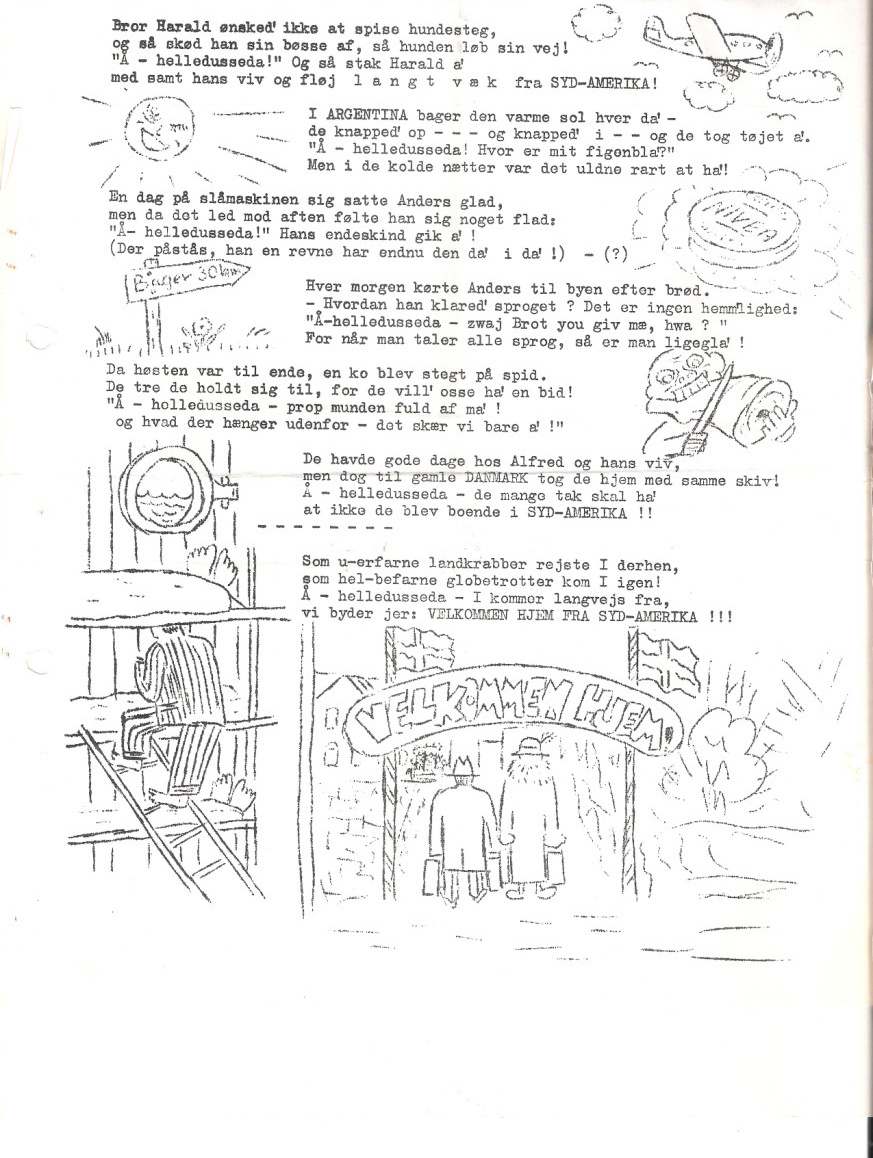 Bror Harald ønsked' ikke at spise hundesteg,
og så skød han sin bøsse af, så hunden løb sin vej!
"Å - helledusseda!" Og så stak Harald a'
med samt hans viv og fløj l a n g t v æ k fra SYD-AMERIKA!
I ARGENTINA bager den varme sol hver da' -
de knapped' op - - - og knapped' i - - og de tog tøjet a'.
"Å - helledusseda! Hvor er mit figenbla'?"
Men i de kolde nætter var det uldne rart at ha'!
En dag på slåmaskinen sig satte Anders glad,
men da det led mod aften følte han sig noget flad:
"Å- helledusseda!" Hans endeskind gik a' !
(Der påstås, han en revne har endnu den da' i da' !) - (?)
NIVEA
Bager 30 km
Hver morgen kørte Anders til byen efter brød.
- Hvordan han klared' sproget ? Det er ingen hemmlighed:
"Å-helledusseda - zwaj Brot you giv mæ, hwa ? "
For når man taler alle sprog, så er man ligegla' !
Da høsten var til ende, en ko blev stegt på spid.
De tre de holdt sig til, for de vill' osse ha' en bid!
"Å - helledusseda - prop munden fuld af ma' !
og hvad der hænger udenfor - det skær vi bare a' !"
De havde gode dage hos Alfred og hans viv,
men dog til gamle DANMARK tog de hjem med samme skiv!
Å - helledusseda - de mange tak skal ha'
at ikke de blev boende i SYD-AMERIKA !!
- - - - - - - -
Som u-erfarne landkrabber rejste I derhen,
som hel-befarne globetrotter kom I igen!
Å - helledusseda - I kommer langvejs fra,
vi byder jer: VELKOMMEN HJEM FRA SYD-AMERIKA !!!
VELKOMMEN HJEM!